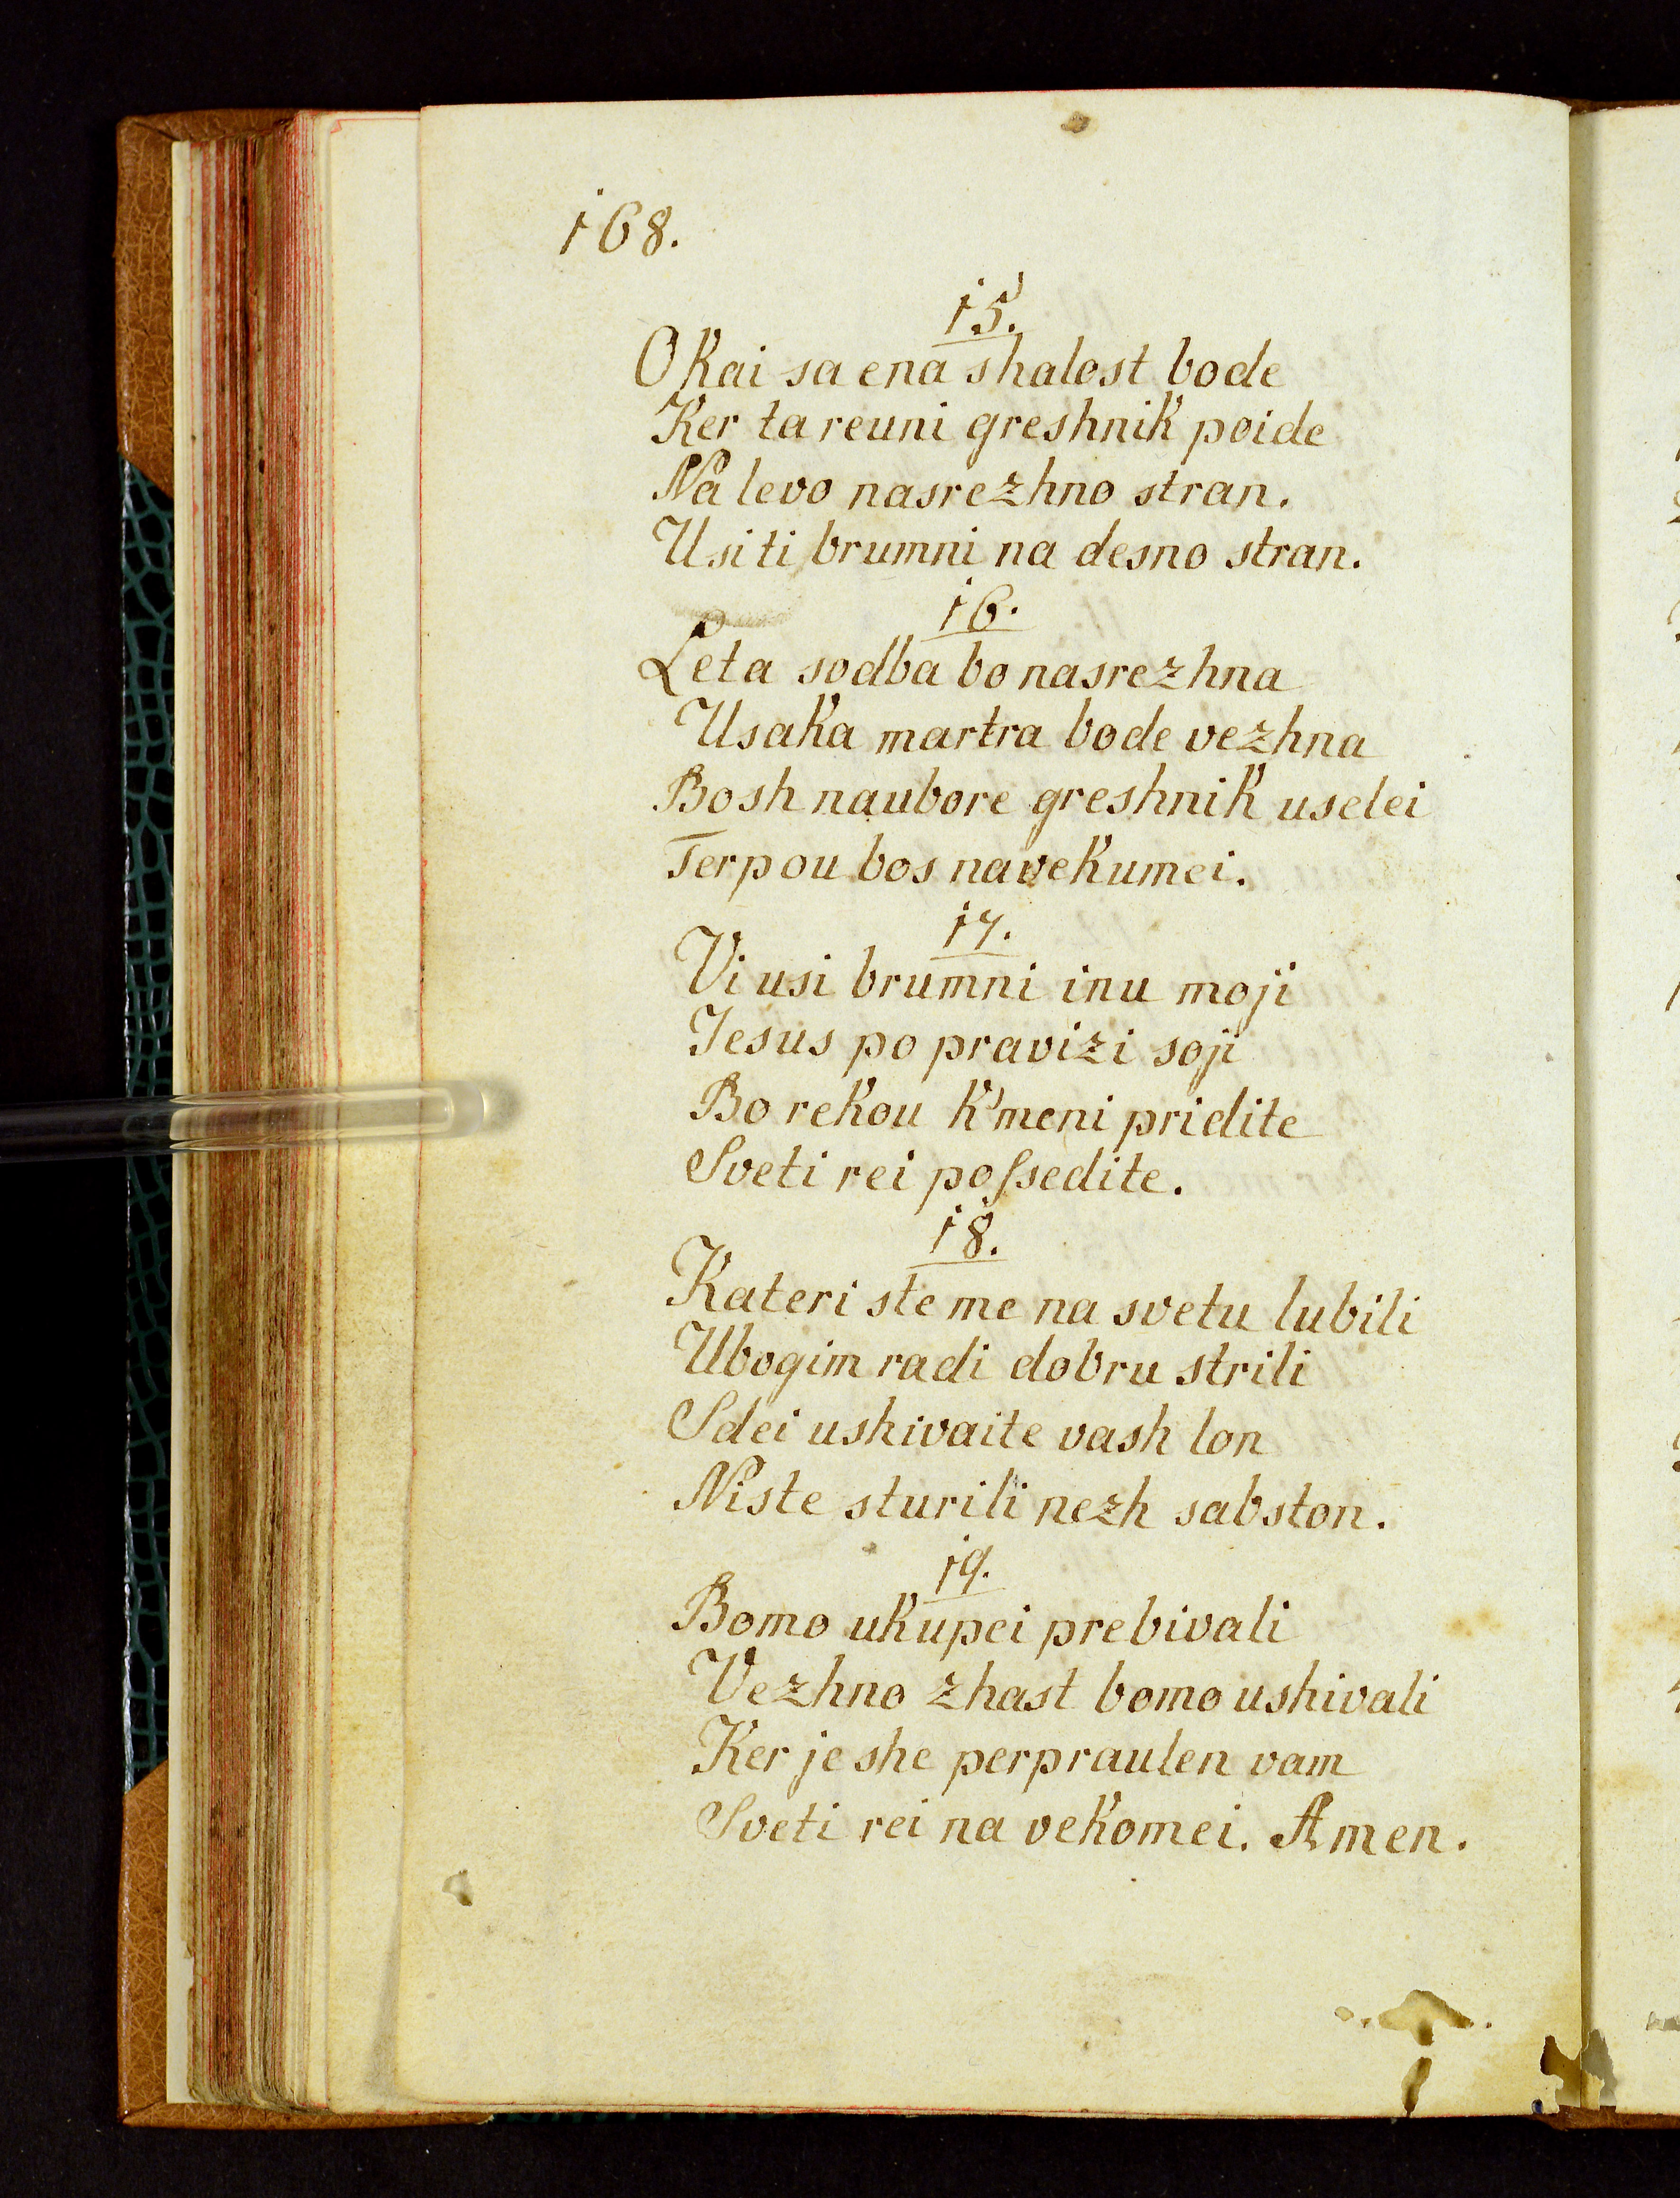 168.
15.
O Kai sa ena shalost bode
Ker ta reuni greshnik poide
Na levo nasrezhno stran.
Usi ti brumni na desno stran.
16.
Leta sodba bo nasrezhna
Usaka martra bode vezhna
Bosh naubore greshnik uselei
Terpou bos navekumei.
17.
Vi usi brumni inu moji
Jesus po pravizi soji
Bo rekou k'meni pridite
Sveti rei poſsedite.
18.
Kateri ste me na svetu lubili
Ubogim radi dobru strili
Sdei ushivaite vash lon
Niste sturili nezh sabston.
19.
Bomo ukupei prebivali
Vezhno zhast bomo ushivali
Ker je she perpraulen vam
Sveti rei na vekomei. Amen.